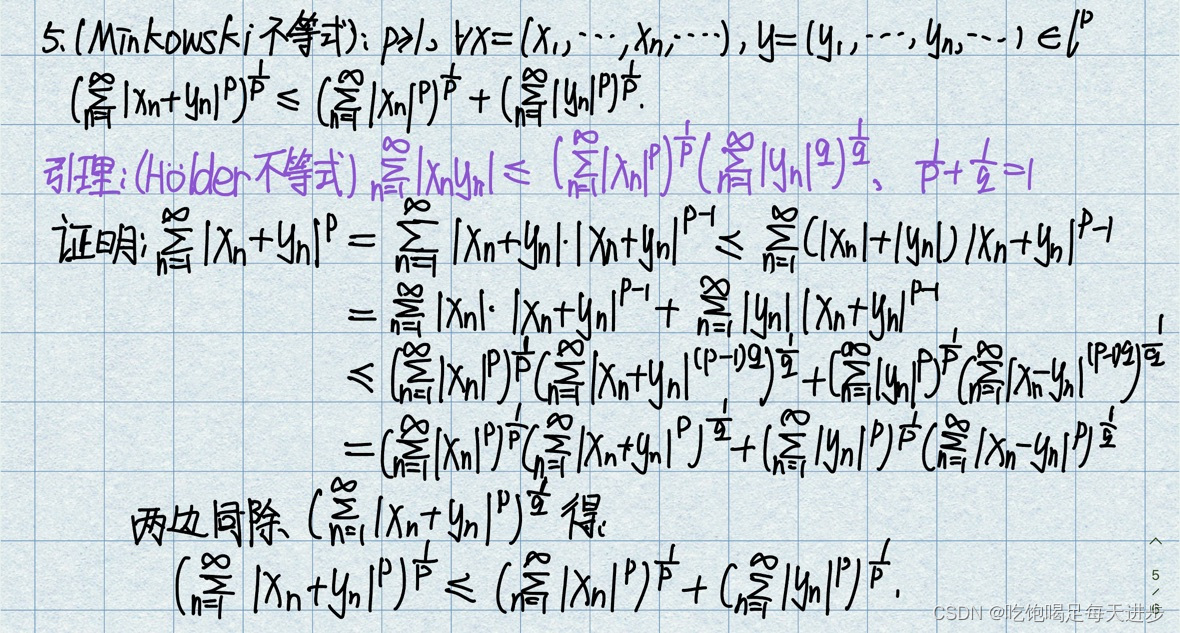 5.(Minkowski不等式): p≥1, ∀x=(x₁,⋯,xₙ,⋯), y=(y₁,⋯,yₙ,⋯)∈lᵖ
(∑_{n=1}^{∞}|xₙ+yₙ|^p)^{1/p} ≤ (∑_{n=1}^{∞}|xₙ|^p)^{1/p} + (∑_{n=1}^{∞}|yₙ|^p)^{1/p}.
引理:(Hölder不等式) ∑_{n=1}^{∞}|xₙyₙ| ≤ (∑_{n=1}^{∞}|xₙ|^p)^{1/p}(∑_{n=1}^{∞}|yₙ|^q)^{1/q}、 1/p+1/q=1
证明: ∑_{n=1}^{∞}|xₙ+yₙ|^p = ∑_{n=1}^{∞}|xₙ+yₙ|·|xₙ+yₙ|^{p-1} ≤ ∑_{n=1}^{∞}(|xₙ|+|yₙ|)|xₙ+yₙ|^{p-1}
= ∑_{n=1}^{∞}|xₙ|·|xₙ+yₙ|^{p-1} + ∑_{n=1}^{∞}|yₙ||xₙ+yₙ|^{p-1}
≤ (∑_{n=1}^{∞}|xₙ|^p)^{1/p}(∑_{n=1}^{∞}|xₙ+yₙ|^{(p-1)q})^{1/q} + (∑_{n=1}^{∞}|yₙ|^p)^{1/p}(∑_{n=1}^{∞}|xₙ-yₙ|^{(p-1)q})^{1/q}
= (∑_{n=1}^{∞}|xₙ|^p)^{1/p}(∑_{n=1}^{∞}|xₙ+yₙ|^p)^{1/q} + (∑_{n=1}^{∞}|yₙ|^p)^{1/p}(∑_{n=1}^{∞}|xₙ-yₙ|^p)^{1/q}
两边同除、(∑_{n=1}^{∞}|xₙ+yₙ|^p)^{1/q} 得:
(∑_{n=1}^{∞}|xₙ+yₙ|^p)^{1/p} ≤ (∑_{n=1}^{∞}|xₙ|^p)^{1/p} + (∑_{n=1}^{∞}|yₙ|^p)^{1/p}.
5
/
6
CSDN @吃饱喝足每天进步